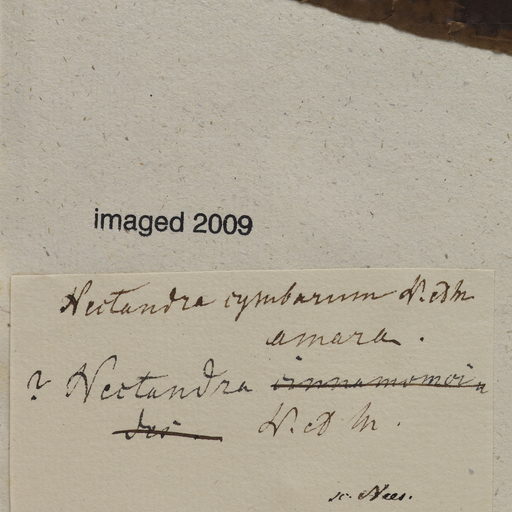 imaged 2009
Nectandra cymbarum N. et M
amara.
? Nectandra cinnamomoi
des N. et M.
sc. Nees.